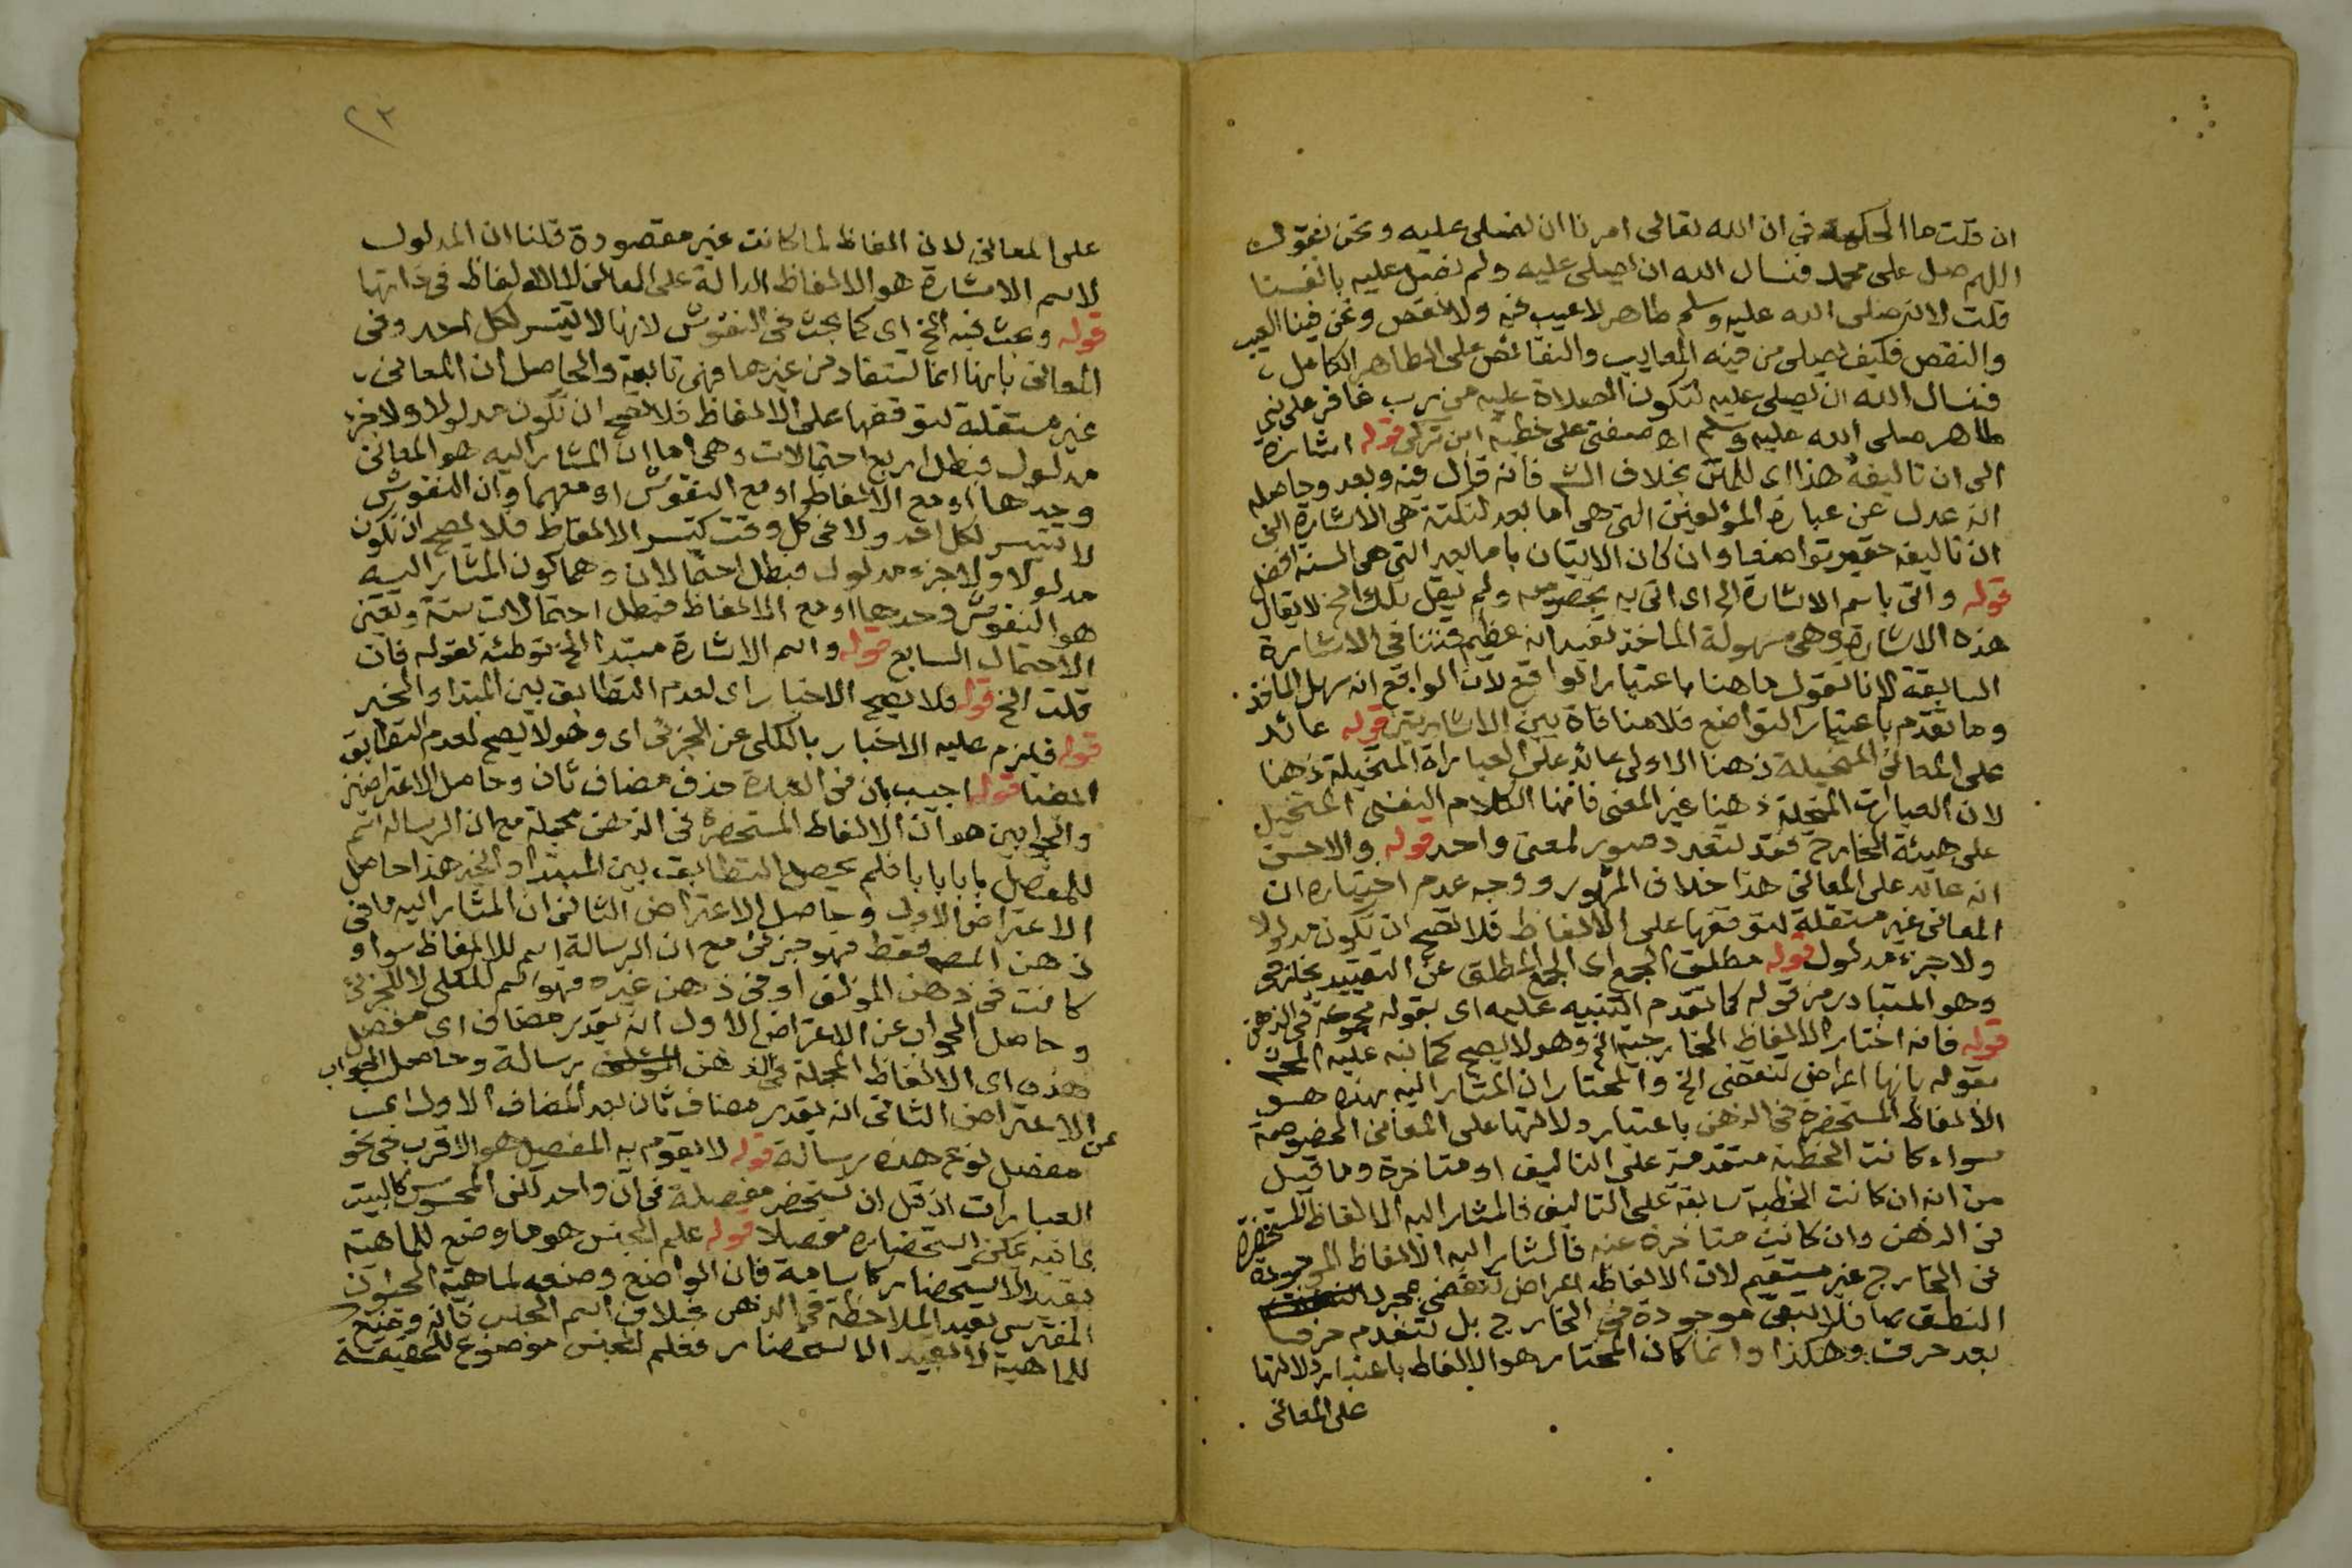 ان قلت ما الحكمة في ان الله تعالى امرنا ان نصلى عليه ونحن نقول
اللهم صل على محمد فنسال الله ان يصلى عليه ولم نصل عليه بانفسنا
قلت لانه صلى الله عليه وسلم طاهر لا عيب فيه ولا نقص ونحن فينا العيب
والنقص فكيف يصلى من فيه المعايب والنقائص على الطاهر الكامل
فنسال الله ان يصلى عليه لتكون الصلاة عليه من رب غافر على نبي
طاهر صلى الله عليه وسلم اه صفتى على خطبة ابن تركى قوله اشارة
الى ان تاليفه هذا اى للمتن بخلاف الش فانه قال فيه وبعد وحاصله
انه عدل عن عبارة المؤلفين التى هى اما بعد لنكتة هى الاشارة الى
ان تاليفه حقير تواضعا وان كان الاتيان باما بعد التى هى السنة افضل
قوله واتى باسم الاشارة الخ اى اتى به بخصوصه ولم يقل تلك الخ لا يقال
هذه الاشارة وهى سهولة الماخذ تفيد انه عظيم فتنافى الاشارة
السابقة لانا نقول ما هنا باعتبار الواقع لان الواقع انه سهل الماخذ
وما تقدم باعتبار التواضع فلا منافاة بين الاشارتين قوله عائد
على المعانى المتخيلة ذهنا الاولى عائد على العبارات المتخيلة ذهنا
لان العبارات المتخيلة ذهنا غير المعنى فانها الكلام النفسى المتخيل
على هيئة الخارج فقد تتعدد صور لمعنى واحد قوله والاحسن
انه عائد على المعانى هذا خلاف المشهور ووجه عدم اختياره ان
المعانى غير مستقلة لتوقفها على الالفاظ فلا تصح ان تكون مدلولا
ولا جزء مدلول قوله مطلق الجمع اى الجمع المطلق عن التقييد بخلافه
وهو المتبادر من قوله كما تقدم التنبيه عليه اى بقوله مجموعة في الذهن
قوله فانه اختار الالفاظ الخارجية الخ وهو لا يصح كما نبه عليه
بقوله بانها اعراض تنقضى الخ والمختار ان المشار اليه بهذه هو
الالفاظ المستحضرة فى الذهن باعتبار دلالتها على المعانى المخصوصة
سواء كانت الخطبة متقدمة على التاليف او متاخرة وما قيل
من انه ان كانت الخطبة سابقة على التاليف فالمشار اليه الالفاظ المستحضرة
فى الذهن وان كانت متاخرة عنه فالمشار اليه الالفاظ الموجودة
فى الخارج غير مستقيم لان الالفاظ اعراض تنقضى بمجرد
النطق بها فلا تبقى موجودة فى الخارج بل تنعدم حرفا
بعد حرف وهكذا وانما كان المختار هو الالفاظ باعتبار دلالتها
على المعانى
٢٣
على المعانى لان الفاظ لما كانت غير مقصودة قلنا ان المدلول
لاسم الاشارة هو الالفاظ الدالة على المعانى لا الالفاظ فى ذاتها
قوله وبحث فيه الخ اى كما بحث فى النقوش لانها لا تتيسر لكل احد وفى
المعانى بانها انما تستفاد من غيرها فهى تابعة والحاصل ان المعانى
غير مستقلة لتوقفها على الالفاظ فلا تصح ان تكون مدلولا ولا جزء
مدلول فبطل اربع احتمالات وهى اما ان المشار اليه هو المعانى
وحدها او مع الالفاظ او مع النقوش او معهما وان النقوش
لا تتيسر لكل احد ولا فى كل وقت كتيسر الالفاظ فلا يصح ان تكون
مدلولا ولا جزء مدلول فبطل احتمالان وهما كون المشار اليه
هو النقوش وحدها او مع الالفاظ فبطل احتمالات ستة وتعين
الاحتمال السابع قوله واسم الاشارة مبتدا الخ توطئة لقوله فان
قلت الخ قوله فلا يصح الاخبار اى لعدم التطابق بين المبتدا والخبر
قوله فيلزم عليه الاخبار بالكلى عن الجزئى اى وهو لا يصح لعدم التطابق
ايضا قوله اجيب بان فى العبارة حذف مضاف ثان وحاصل الاعتراضين
والجوابين هو ان الالفاظ المستحضرة فى الذهن مجملة مع ان الرسالة اسم
للمفصل بابا بابا فلم يحصل التطابق بين المبتدا والخبر هذا حاصل
الاعتراض الاول وحاصل الاعتراض الثانى ان المشار اليه ما فى
ذهن المصه فقط فهو جزئى مع ان الرسالة اسم للالفاظ سواء
كانت فى ذهن المؤلف او فى ذهن غيره فهو اسم للكلى لا للجزئى
وحاصل الجواب عن الاعتراض الاول انه بتقدير مضاف اى مفصل
هذه اى الالفاظ المجملة فى الذهن رسالة وحاصل الجواب
عن الاعتراض الثانى انه بتقدير مضاف ثان بعد المضاف الاول اى
مفصل نوع هذه رسالة قوله لا يقوم به المفصل هو الاقرب فى نحو
العبارات اذ قل ان تستحضر مفصلة فى ان واحد اما المحسوس كالبيت
بما فيه يمكن استحضاره مفصلا قوله علم الجنس هو ما وضع للماهية
بقيد الاستحضار كاسامة فان الواضع وضعه لماهية الحيوان
المفترس بقيد الملاحظة فى الذهن بخلاف اسم الجنس فانه وضع
للماهية لا بقيد الاستحضار فعلم الجنس موضوع للحقيقة